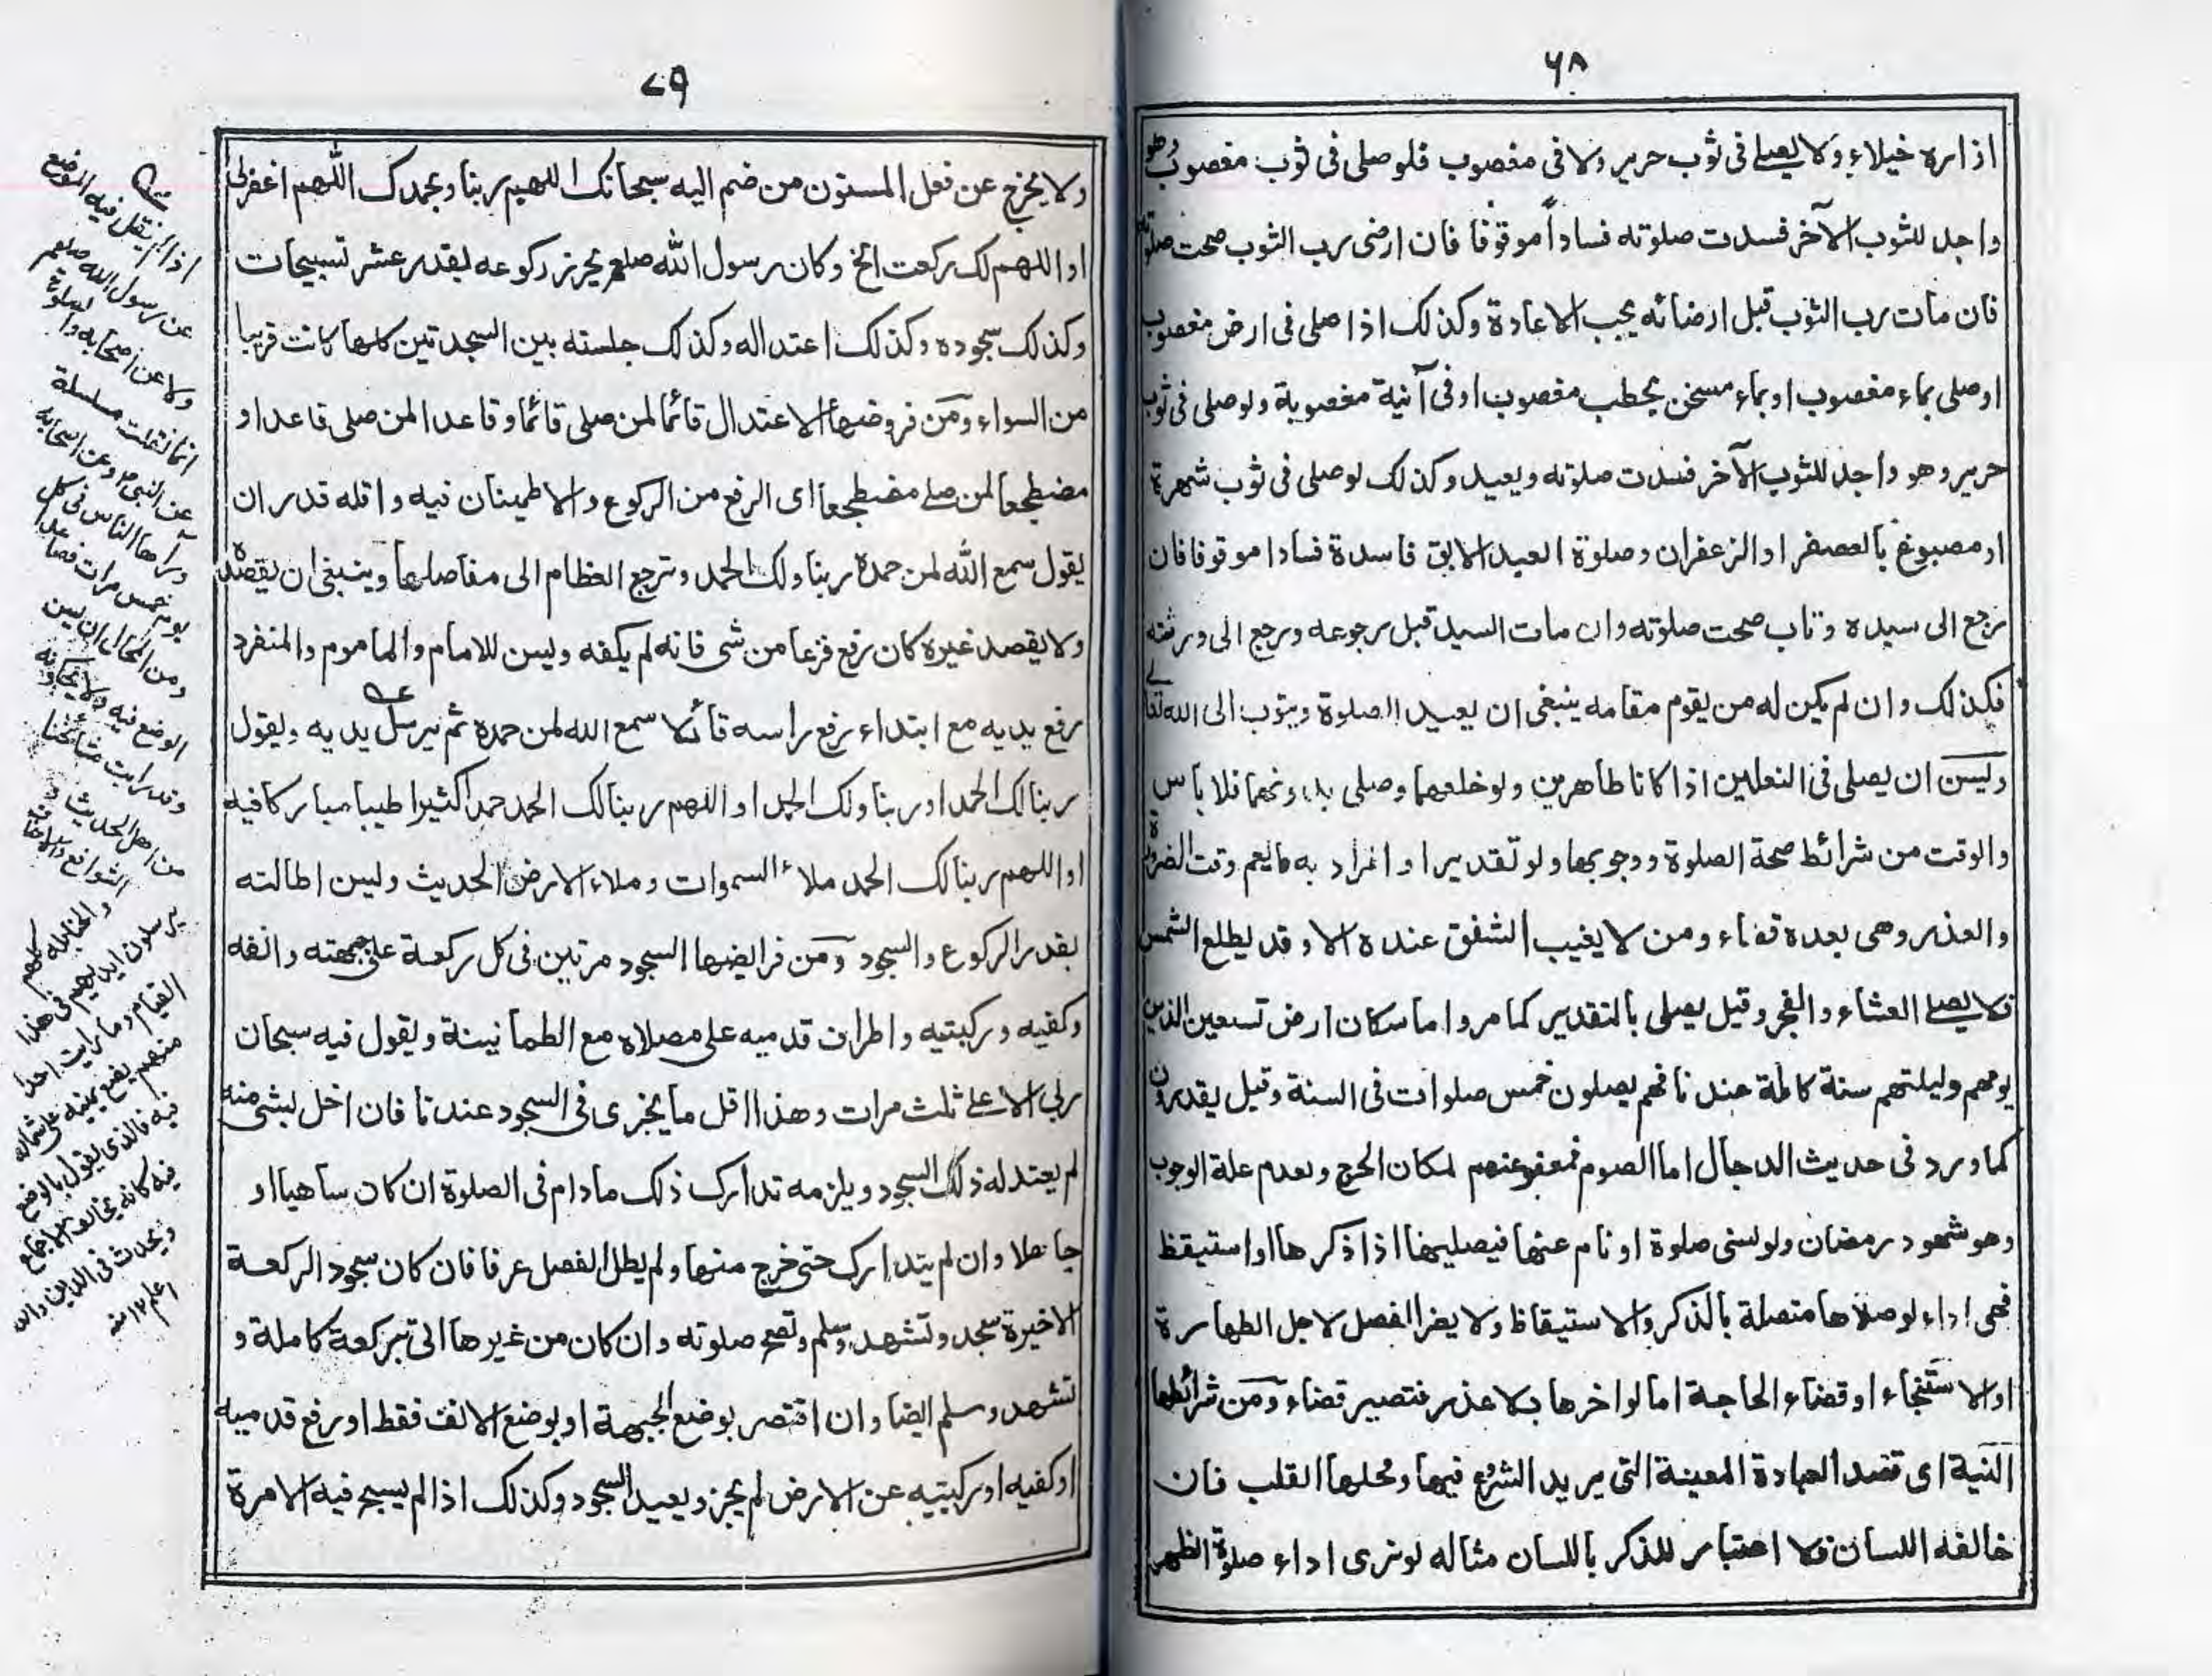 ٦٨
ازاره خيلاء ولا يصلے فى ثوب حرير ولا فى مغصوب فلو صلى فى ثوب مغصوب وهو
واجد للثوب الآخر فسدت صلوته فسادا موقوفا فان ارضى رب الثوب صحت صلوته
فان مات رب الثوب قبل ارضائه يجب الاعادة وكذلك اذا صلى فى ارض مغصوب
او صلى بماء مغصوب او بماء مسخن بحطب مغصوب او فى آنية مغصوبة ولو صلى فى ثوب
حرير وهو واجد للثوب الآخر فسدت صلوته ويعيد وكذلك لو صلى فى ثوب شهرة
او مصبوغ بالعصفر او الزعفران وصلوة العبد الابق فاسدة فسادا موقوفا فان
رجع الى سيده وتاب صحت صلوته وان مات السيد قبل رجوعه ورجع الى ورثته
فكذلك وان لم يكن له من يقوم مقامه ينبغى ان يعيد الصلوة ويتوب الى الله تعالے
وليسن ان يصلى فى النعلين اذا كانا طاهرين ولو خلعهما وصلى بدونهما فلا باس
والوقت من شرائط صحة الصلوة ووجوبها ولو تقديرا والمراد به ما يعم وقت الضرورة
والعذر وهى بعده قضاء ومن لا يغيب الشفق عنده الا وقد يطلع الشمس
فلا يصلے العشاء والفجر وقيل يصلى بالتقدير كما مر واما سكان ارض تسعين الذين
يومهم وليلتهم سنة كاملة عندنا فهم يصلون خمس صلوات فى السنة وقيل يقدرون
كما ورد فى حديث الدجال اما الصوم فمعفو عنهم لمكان الحرج ولعدم علة الوجوب
وهو شهود رمضان ولو نسى صلوة او نام عنها فيصليها اذا ذكرها او استيقظ
فهى اداء لو صلاها متصلة بالذكر والاستيقاظ ولا يضر الفصل لاجل الطهارة
او الاستنجاء او قضاء الحاجة اما لو اخرها بلا عذر فتصير قضاء ومن شرائطها
النية اى قصد العبادة المعينة التى يريد الشروع فيها ومحلها القلب فان
خالفه اللسان فلا اعتبار للذكر باللسان مثاله لو نوى اداء صلوة الظهر
٧٩
ولا يخرج عن فعل المسنون من ضم اليه سبحانك اللهم ربنا وبحمدك اللهم اغفرلى
او اللهم لك ركعت الخ وكان رسول الله صلعم يحرز ركوعه بقدر عشر تسبيحات
وكذلك سجوده وكذلك اعتداله وكذلك جلسته بين السجدتين كلها كانت قريبا
من السواء ومن فروضها الاعتدال قائما لمن صلى قائما وقاعدا لمن صلى قاعدا و
مضطجعا لمن صلے مضطجعا اى الرفع من الركوع والاطمينان فيه واقله قدر ان
يقول سمع الله لمن حمده ربنا ولك الحمد وترجع العظام الى مفاصلها وينبغى ان يقصده
ولا يقصد غيره كان رفع فزعا من شى فانه لم يكفه وليسن للامام والماموم والمنفرد
رفع يديه مع ابتداء رفع راسه قائلا سمع الله لمن حمده ثم يرسل يديه ويقول
ربنا لك الحمد او ربنا ولك الحمد او اللهم ربنا لك الحمد حمدا كثيرا طيبا مباركا فيه
او اللهم ربنا لك الحمد ملاء السموات وملاء الارض الحديث وليسن اطالته
بقدر الركوع والسجود ومن فرايضها السجود مرتين فى كل ركعة على جبهته وانفه
وكفيه وركبتيه واطراف قدميه على مصلاه مع الطمانينة ويقول فيه سبحان
ربى الاعلے ثلث مرات وهذا اقل ما يجزى فى السجود عندنا فان اخل بشى منه
لم يعتد له ذلك السجود ويلزمه تدارك ذلك مادام فى الصلوة ان كان ساهيا او
جاهلا وان لم يتدارك حتى خرج منها ولم يطل الفصل عرفا فان كان سجود الركعة
الاخيرة سجد وتشهد وسلم وتصح صلوته وان كان من غيرها اتى بركعة كاملة و
تشهد وسلم ايضا وان اقتصر بوضع الجبهة او بوضع الانف فقط او رفع قدميه
او كفيه او ركبتيه عن الارض لم يجز ويعيد السجود وكذلك اذا لم يسبح فيه الا مرة
اذا لم ينقل فيه الوضع
عن رسول الله صلعم
ولا عن اصحابه والصلوة
انما نقلت مسلسلة
عن النبى ص وعن اصحابه
ورآها الناس فى كل
يوم خمس مرات فصاعدا
ومن المحال ان يسن
الوضع فيه ولا يحكونه
وقد رايت مشائخنا
من اهل الحديث
الشوافع والاحناف
والحنابلة كلهم
يرسلون ايديهم فى هذا
القيام وما رايت احدا
منهم يضع يمينه على شماله
فيه فالذى يقول بالوضع
فيه كانه يخالف الاجماع
ويحدث فى الدين والله
اعلم ١٢ منه